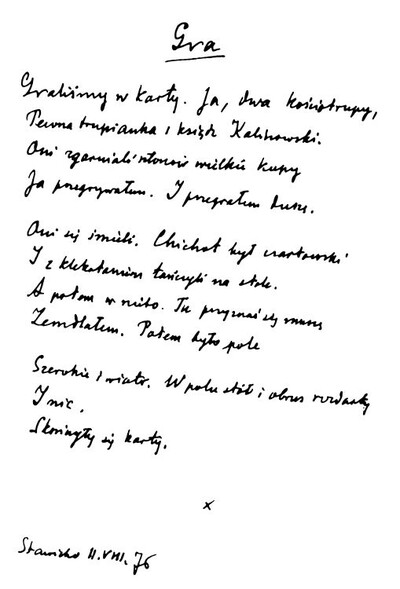 Gra
Graliśmy w karty. Ja, dwa kościotrupy,
Pewna trupianka i ksiądz Kalinowski.
Oni zgarniali słoniów wielkie kupy
Ja przegrywałem. I przegrałem duszę.
Oni się śmieli. Chichot był czartowski
I z klekotaniem tańczyli na stole.
A potem w niebo. Tu przyznać się muszę
Zemdlałem. Potem było pole
Szerokie i wiatr. W polu stół i obrus rozdarty
I nic.
Skończyły się karty.
x
Stawisko 11.VIII.76